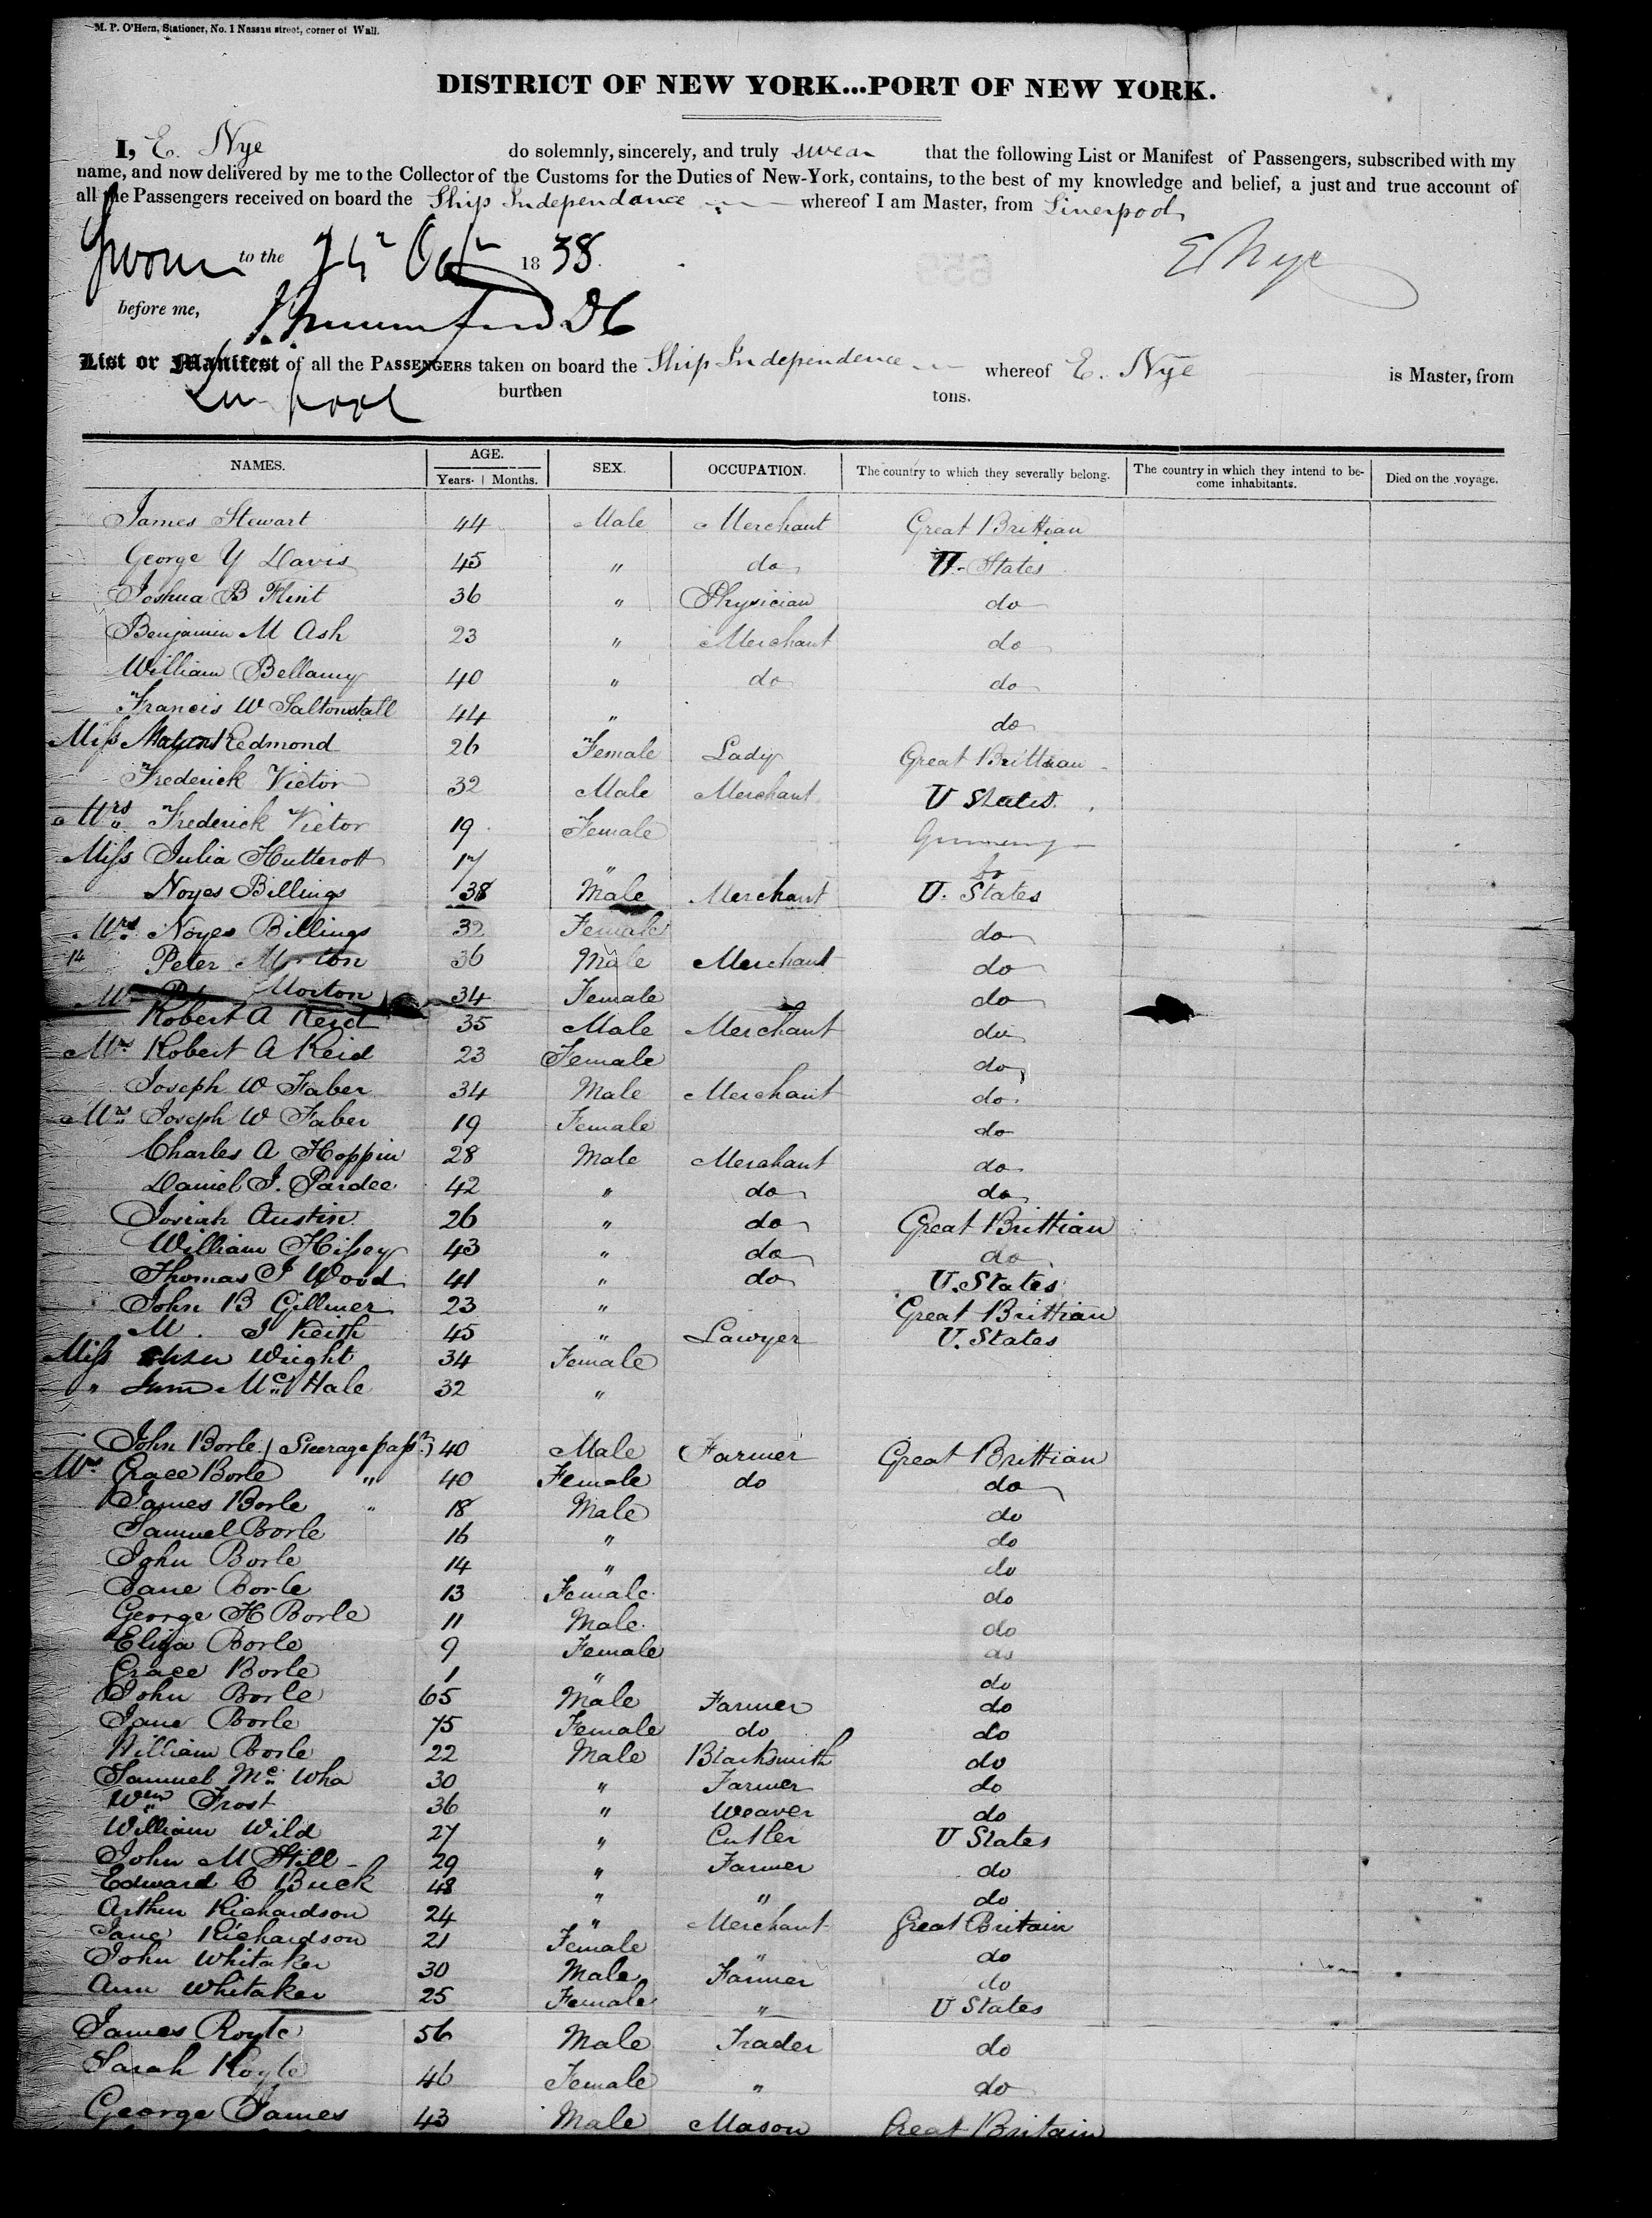 M. P. O'Hern, Stationer, No. 1 Nassau street, corner of Wall.
DISTRICT OF NEW YORK...PORT OF NEW YORK.
I, E. Nye do solemnly, sincerely, and truly swear that the following List or Manifest of Passengers, subscribed with my
name, and now delivered by me to the Collector of the Customs for the Duties of New-York, contains, to the best of my knowledge and belief, a just and true account of
all the Passengers received on board the Ship Independance whereof I am Master, from Liverpool
Sworn to the Oct 1838. E Nye
before me,
List or Manifest of all the PASSENGERS taken on board the Ship Independence whereof E. Nye is Master, from
Liverpool burthen tons.
NAMES. AGE. Years. Months. SEX. OCCUPATION. The country to which they severally belong. The country in which they intend to become inhabitants. Died on the voyage.
James Stewart 44 Male Merchant Great Brittian
George Y Davis 45 " do U. States
Joshua B Flint 36 " Physician do
Benjamin M Ash 23 " Merchant do
William Bellamy 40 " do do
Francis W Saltonstall 44 " do
Miss Redmond 26 Female Lady Great Brittian
Frederick Vietor 32 Male Merchant U States
Mrs Frederick Vietor 19 Female Germany
Miss Julia Hutterott 17 " do
Noyes Billings 38 Male Merchant U. States
Mrs Noyes Billings 32 Female do
14 Peter Morton 36 Male Merchant do
Morton 34 Female do
Robert A Reid 35 Male Merchant do
Mrs Robert A Reid 23 Female do
Joseph W Faber 34 Male Merchant do
Mrs Joseph W Faber 19 Female do
Charles A Hoppin 28 Male Merchant do
Daniel J. Pardee 42 " do do
Josiah Austin 26 " do Great Brittian
William Hilsey 43 " do do
Thomas J Wood 41 " do U. States
John B Gillmer 23 " Great Brittian
M. J Keith 45 " Lawyer U. States
Miss Wright 34 Female
" McHale 32 "
John Borle (Steerage passr) 40 Male Farmer Great Brittian
Mrs Grace Borle " 40 Female do do
James Borle " 18 Male do
Samuel Borle 16 " do
John Borle 14 " do
Jane Borle 13 Female do
George H Borle 11 Male do
Eliza Borle 9 Female do
Grace Borle 1 " do
John Borle 65 Male Farmer do
Jane Borle 75 Female do do
William Borle 22 Male Blacksmith do
Samuel Mc Wha 30 " Farmer do
Wm Frost 36 " Weaver do
William Wild 27 " Cutler U States
John M Still 29 " Farmer do
Edward C Buck 48 " " do
Arthur Richardson 24 " Merchant Great Britain
Jane Richardson 21 Female " do
John Whitaker 30 Male Farmer do
Ann Whitaker 25 Female " U States
James Royle 56 Male Trader do
Sarah Royle 46 Female " do
George James 43 Male Mason Great Britain